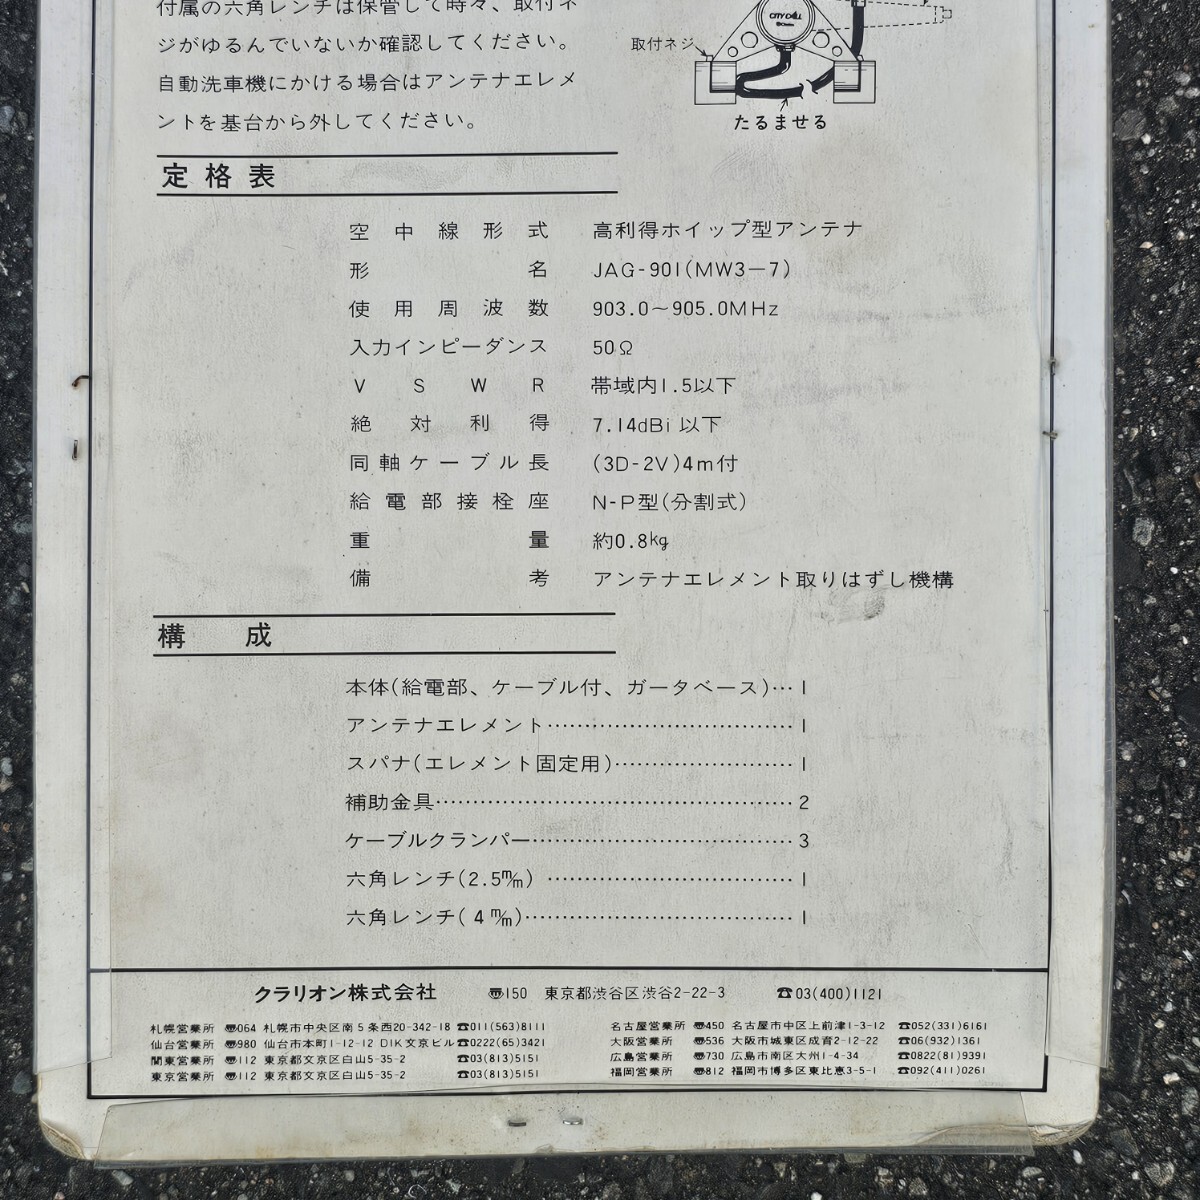 付属の六角レンチは保管して時々、取付ネ
ジがゆるんでいないか確認してください。
自動洗車機にかける場合はアンテナエレメ
ントを基台から外してください。
CITY CALL
取付ネジ
たるませる
定格表
空中線形式 高利得ホイップ型アンテナ
形名 JAG-901(MW3-7)
使用周波数 903.0～905.0MHz
入力インピーダンス 50Ω
VSWR 帯域内1.5以下
絶対利得 7.14dBi 以下
同軸ケーブル長 (3D-2V)4m付
給電部接栓座 N-P型(分割式)
重量 約0.8kg
備考 アンテナエレメント取りはずし機構
構成
本体(給電部、ケーブル付、ガータベース)…1
アンテナエレメント…………………………1
スパナ(エレメント固定用)…………………1
補助金具………………………………………2
ケーブルクランパー…………………………3
六角レンチ(2.5m/m)…………………………1
六角レンチ(4m/m)……………………………1
クラリオン株式会社 〠150 東京都渋谷区渋谷2-22-3 ☎03(400)1121
札幌営業所 〠064 札幌市中央区南5条西20-342-18 ☎011(563)8111
仙台営業所 〠980 仙台市本町1-12-12 DIK文京ビル ☎0222(65)3421
関東営業所 〠112 東京都文京区白山5-35-2 ☎03(813)5151
東京営業所 〠112 東京都文京区白山5-35-2 ☎03(813)5151
名古屋営業所 〠450 名古屋市中区上前津1-3-12 ☎052(331)6161
大阪営業所 〠536 大阪市城東区成育2-12-22 ☎06(932)1361
広島営業所 〠730 広島市南区大州1-4-34 ☎0822(81)9391
福岡営業所 〠812 福岡市博多区東比恵3-5-1 ☎092(411)0261